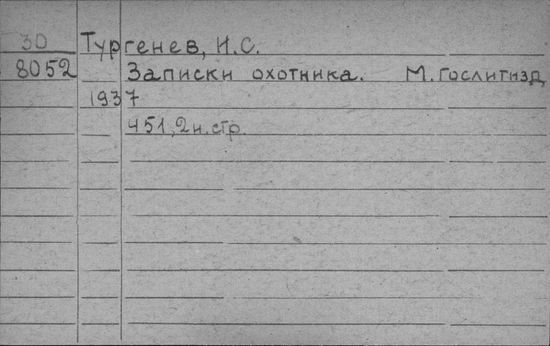 30 Тургенев, И.С.
8052 Записки охотника. М. Гослитизд
1937
451, 2 н. стр.